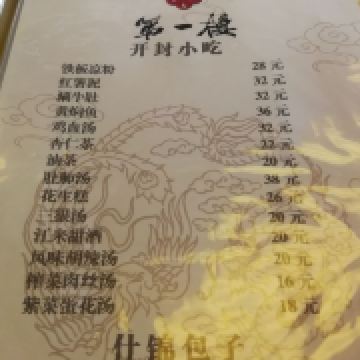 第一楼
开封小吃
铁板凉粉 28 元
红薯泥 32 元
32 元
黄焖鱼 36 元
鸡血汤 32 元
杏仁茶 22 元
油茶 20 元
肚肺汤 38 元
花生糕 26 元
三狠汤 20 元
江米甜酒 20 元
风味胡辣汤 20 元
榨菜肉丝汤 16 元
紫菜蛋花汤 18 元
什锦包子